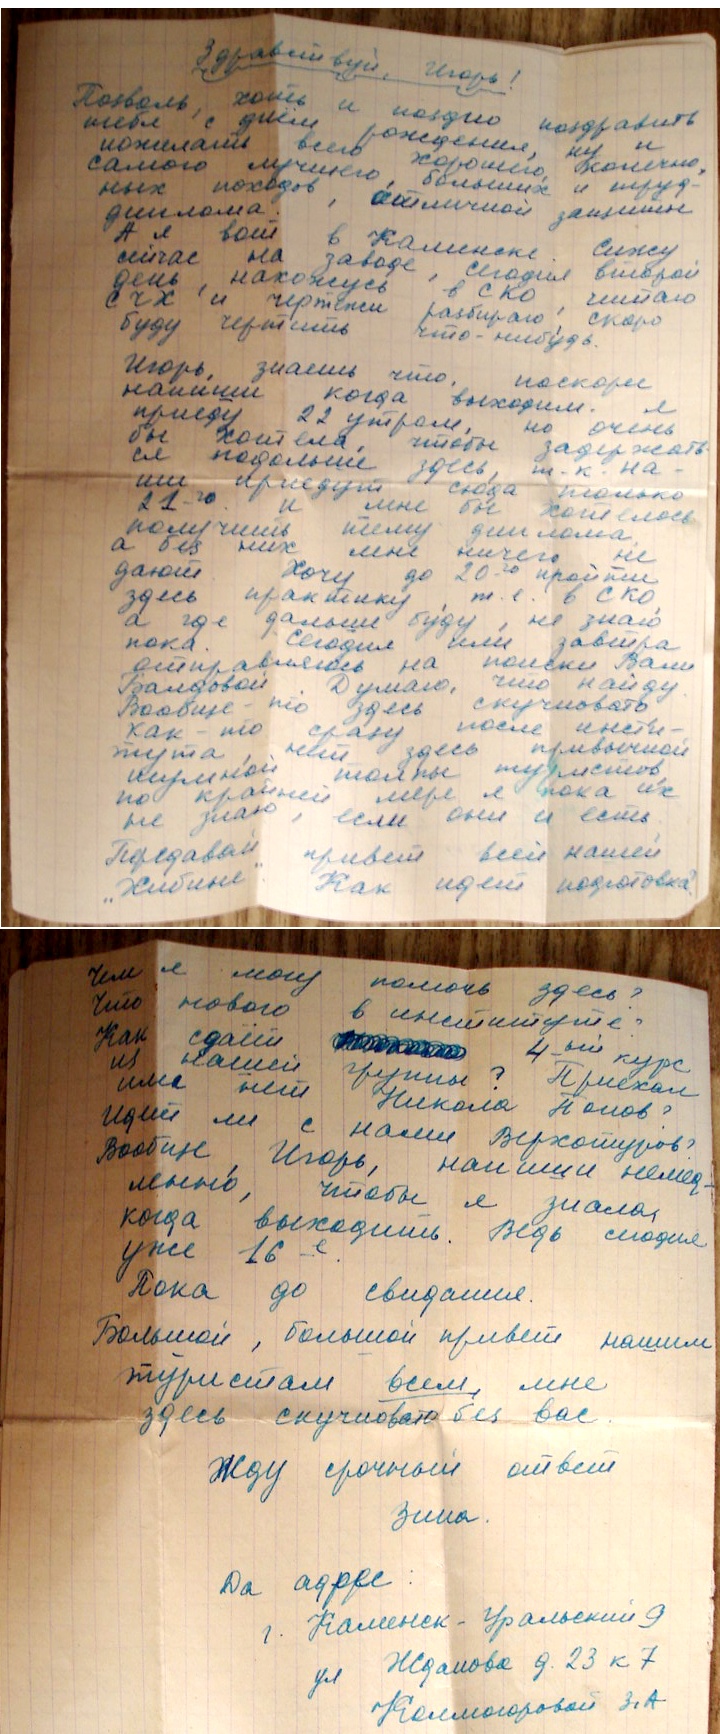 Здравствуй, Игорь!
Позволь, хоть и поздно поздравить
тебя с днём рождения, ну и
пожелать всего хорошего, конечно,
самого лучшего, больших и труд-
ных походов, отличной защиты
диплома.
А я вот в Каменске. Сижу
сейчас на заводе, сегодня второй
день, нахожусь в СКО, читаю
СЧХ и чертежи разбираю, скоро
буду чертить что-нибудь.
Игорь, знаешь что, поскорее
напиши когда выходим. Я
приеду 22 утром, но очень
бы хотела, чтобы задержать-
ся подольше здесь, т.к. на-
ши приедут сюда только
21-го и мне бы хотелось
получить тему диплома,
а без них мне ничего не
дают. Хочу до 20-го пройти
здесь практику т.е. в СКО
а где дальше буду, не знаю
пока. Сегодня или завтра
отправляюсь на поиски Вали
Балдовой. Думаю, что найду.
Вообще-то здесь скучновато
как-то сразу после инсти-
тута, нет здесь привычной
шумной толпы туристов
по крайней мере я пока их
не знаю, если они и есть.
Передавай привет всей нашей
„Хибине". Как идет подготовка?
Чем я могу помочь здесь?
Что нового в институте?
Как сдаёт 4-ый курс
из нашей группы? Приехал
или нет Никола Попов?
Идет ли с нами Верхотуров?
Вообще, Игорь, напиши немед-
льно, чтобы я знала,
когда выходить. Ведь сегодня
уже 16-е.
Пока до свидания.
Большой, большой привет нашим
туристам всем, мне
здесь скучновато без вас.
Жду срочный ответ
Зина.
Да адрес:
г. Каменск-Уральский 9
ул Жданова д. 23 к 7
Колмогоровой З.А